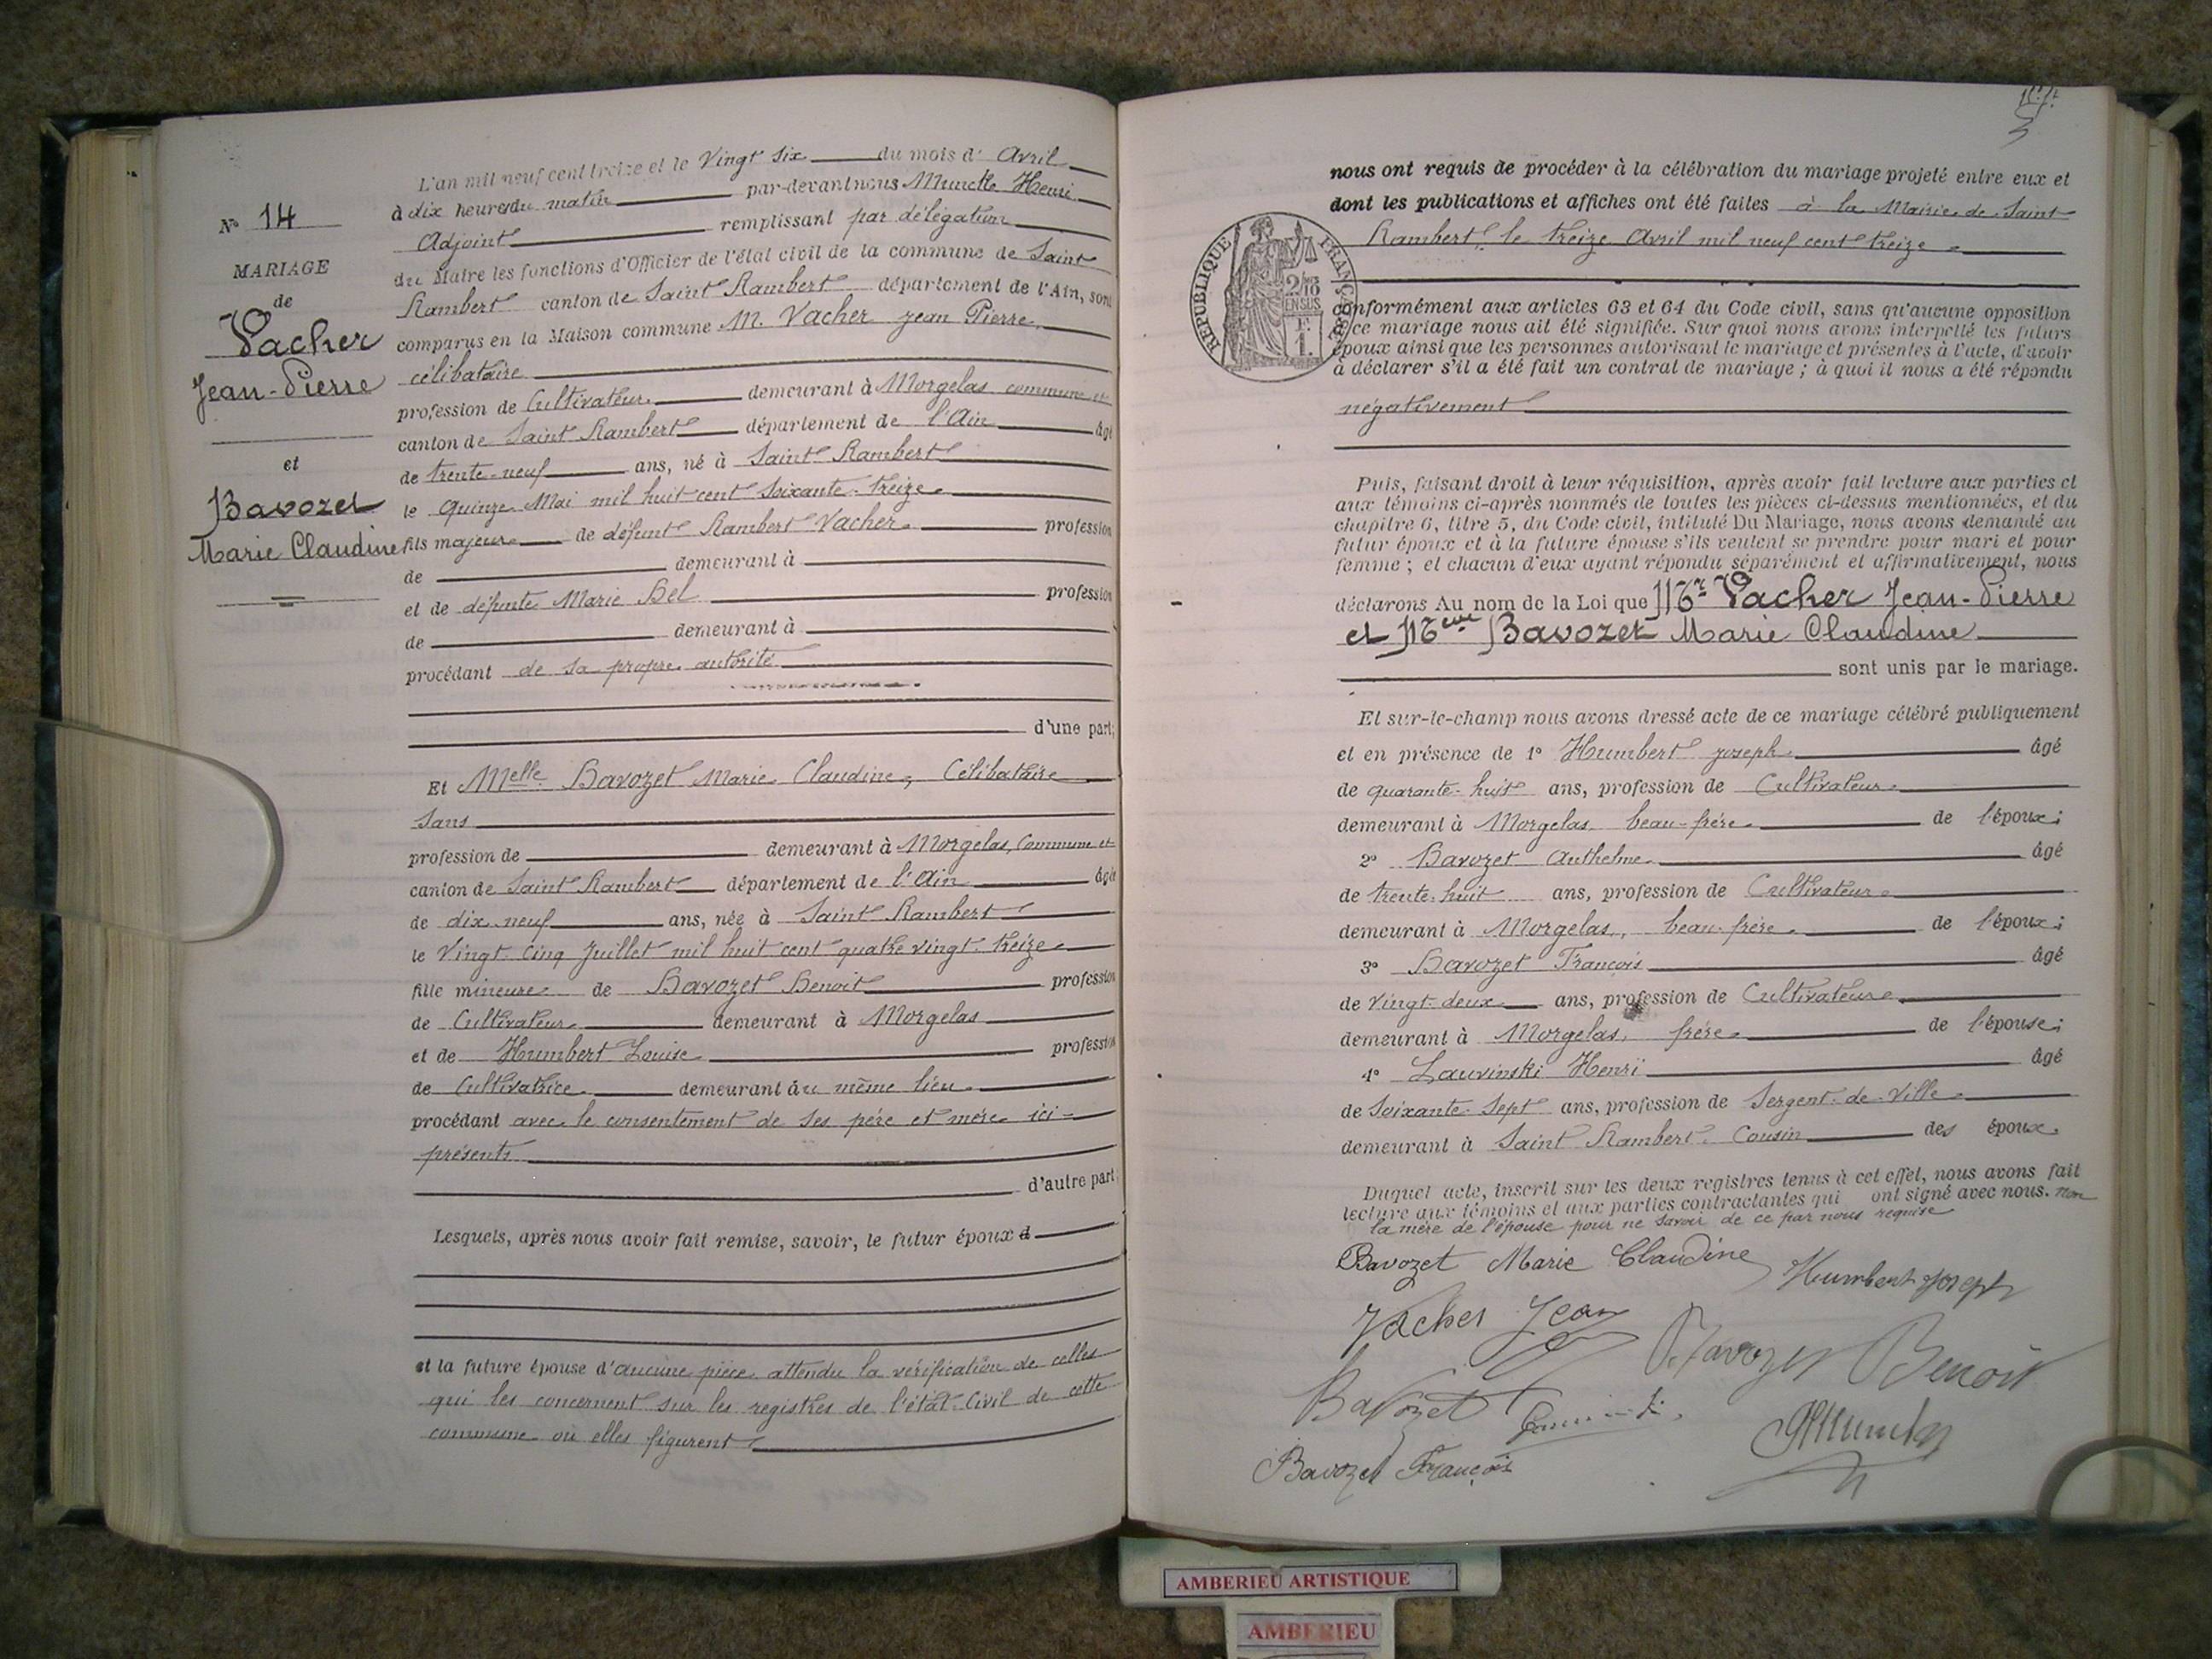 N° 14
MARIAGE
de
Vacher
Jean-Pierre
et
Bavozet
Marie Claudine
L'an mil neuf cent treize et le Vingt six du mois d' Avril
à dix heures du matin par-devant nous Henri
Adjoint remplissant par délégation
du Maire les fonctions d'Officier de l'état civil de la commune de Saint
Rambert canton de Saint Rambert département de l'Ain, sont
comparus en la Maison commune M. Vacher Jean Pierre
célibataire
profession de Cultivateur demeurant à Morgelas commune et
canton de Saint Rambert département de l'Ain âgé
de trente-neuf ans, né à Saint Rambert
le quinze Mai mil huit cent soixante-treize
fils majeur de défunt Rambert Vacher profession
de demeurant à
et de défunte Marie Bel profession
de demeurant à
procédant de sa propre autorité
d'une part;
Et Melle Bavozet Marie Claudine, Célibataire
Sans
profession de demeurant à Morgelas, Commune et
canton de Saint Rambert département de l'Ain âgée
de dix neuf ans, née à Saint Rambert
le Vingt Cinq Juillet mil huit cent quatre vingt treize
fille mineure de Bavozet Benoit profession
de Cultivateur demeurant à Morgelas
et de Humbert Louise profession
de Cultivatrice demeurant au même lieu
procédant avec le consentement de ses père et mère ici-
présents
d'autre part.
Lesquels, après nous avoir fait remise, savoir, le futur époux d
et la future épouse d'aucune pièce attendu la vérification de celles
qui les concernent sur les registres de l'état-Civil de cette
commune où elles figurent
nous ont requis de procéder à la célébration du mariage projeté entre eux et
dont les publications et affiches ont été faites à la Mairie de Saint
Rambert le treize Avril mil neuf cent treize
RÉPUBLIQUE FRANÇAISE
2/10
EN SUS
F.
1.
conformément aux articles 63 et 64 du Code civil, sans qu'aucune opposition
à ce mariage nous ait été signifiée. Sur quoi nous avons interpellé les futurs
époux ainsi que les personnes autorisant le mariage et présentes à l'acte, d'avoir
à déclarer s'il a été fait un contrat de mariage ; à quoi il nous a été répondu
négativement
Puis, faisant droit à leur réquisition, après avoir fait lecture aux parties et
aux témoins ci-après nommés de toutes les pièces ci-dessus mentionnées, et du
chapitre 6, titre 5, du Code civil, intitulé Du Mariage, nous avons demandé au
futur époux et à la future épouse s'ils veulent se prendre pour mari et pour
femme ; et chacun d'eux ayant répondu séparément et affirmativement, nous
déclarons Au nom de la Loi que Mr Vacher Jean-Pierre
et Melle Bavozet Marie Claudine
sont unis par le mariage.
Et sur-le-champ nous avons dressé acte de ce mariage célébré publiquement
et en présence de 1° Humbert Joseph âgé
de quarante-huit ans, profession de Cultivateur
demeurant à Morgelas beau-frère de l'époux;
2° Bavozet Anthelme âgé
de trente-huit ans, profession de Cultivateur
demeurant à Morgelas, beau-frère de l'époux;
3° Bavozet François âgé
de vingt-deux ans, profession de Cultivateur
demeurant à Morgelas, frère de l'épouse;
4° Lauvinski Henri âgé
de Soixante-Sept ans, profession de Sergent-de-Ville
demeurant à Saint Rambert Cousin des époux
Duquel acte, inscrit sur les deux registres tenus à cet effet, nous avons fait
lecture aux témoins et aux parties contractantes qui ont signé avec nous. non
la mère de l'épouse pour ne savoir de ce par nous requise
Bavozet Marie Claudine
Humbert Joseph
Vacher Jean
Bavozet Benoit
Bavozet
Bavozet François
AMBERIEU ARTISTIQUE
AMBERIEU